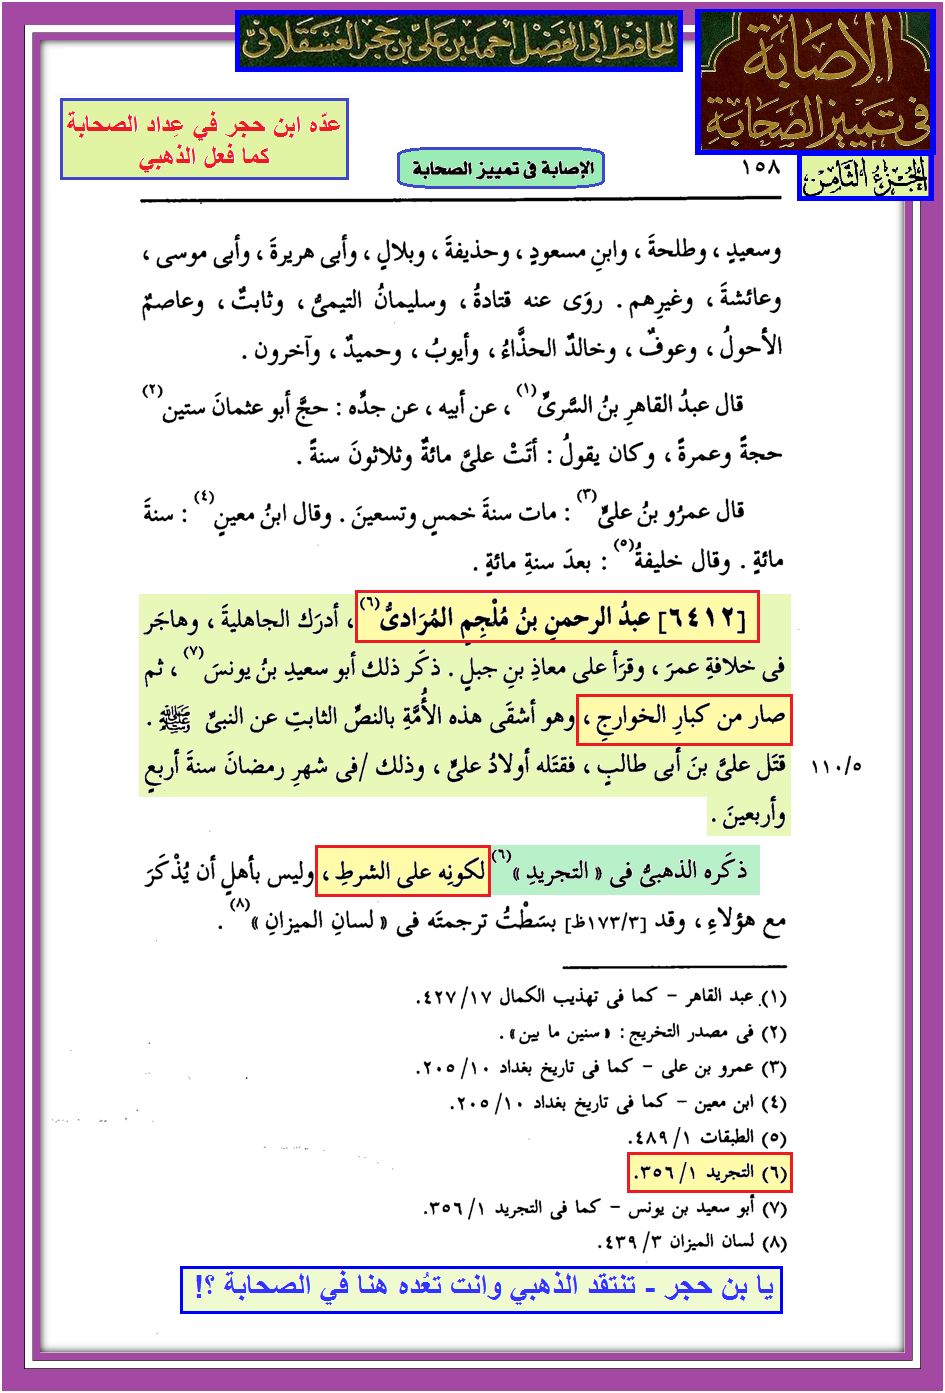 للحافظ أبي الفضل أحمد بن علي بن حجر العسقلاني
الإصابة
في تمييز الصحابة
الجزء الثامن
عدّه ابن حجر في عِداد الصحابة
كما فعل الذهبي
١٥٨
الإصابة فى تمييز الصحابة
وسعيدٍ ، وطلحةَ ، وابنِ مسعودٍ ، وحذيفةَ ، وبلالٍ ، وأبى هريرةَ ، وأبى موسى ،
وعائشةَ ، وغيرِهم . روَى عنه قتادةُ ، وسليمانُ التيمىُّ ، وثابتٌ ، وعاصمٌ
الأحولُ ، وعوفٌ ، وخالدٌ الحذَّاءُ ، وأيوبُ ، وحميدٌ ، وآخرون .
قال عبدُ القاهرِ بنُ السَّرىِّ(١) ، عن أبيه ، عن جدِّه : حجَّ أبو عثمانَ ستين(٢)
حجةً وعمرةً ، وكان يقولُ : أتَتْ علىَّ مائةٌ وثلاثونَ سنةً .
قال عمرُو بنُ علىٍّ(٣) : مات سنةَ خمسٍ وتسعينَ . وقال ابنُ معينٍ(٤) : سنةَ
مائةٍ . وقال خليفةُ(٥) : بعدَ سنةِ مائةٍ .
[٦٤١٢] عبدُ الرحمنِ بنُ مُلْجِمٍ المُرَادىُّ(٦) ، أدرَك الجاهليةَ ، وهاجَر
فى خلافةِ عمرَ ، وقرَأ على معاذِ بنِ جبلٍ . ذكَر ذلك أبو سعيدِ بنُ يونسَ(٧) ، ثم
صار من كبارِ الخوارجِ ، وهو أشقَى هذه الأُمَّةِ بالنصِّ الثابتِ عن النبىِّ ﷺ .
قتَل علىَّ بنَ أبى طالبٍ ، فقتَله أولادُ علىٍّ ، وذلك /فى شهرِ رمضانَ سنةَ أربعٍ
١١٠/٥
وأربعينَ .
ذكَره الذهبىُّ فى «التجريدِ»(٦) لكونِه على الشرطِ ، وليس بأهلٍ أن يُذْكَرَ
مع هؤلاءِ ، وقد [١٧٣/٣ظ] بسَطْتُ ترجمتَه فى «لسانِ الميزانِ»(٨) .
(١) عبد القاهر - كما فى تهذيب الكمال ١٧/ ٤٢٧.
(٢) فى مصدر التخريج: «سنين ما بين».
(٣) عمرو بن على - كما فى تاريخ بغداد ١٠/ ٢٠٥.
(٤) ابن معين - كما فى تاريخ بغداد ١٠/ ٢٠٥.
(٥) الطبقات ١/ ٤٨٩.
(٦) التجريد ١/ ٣٥٦.
(٧) أبو سعيد بن يونس - كما فى التجريد ١/ ٣٥٦.
(٨) لسان الميزان ٣/ ٤٣٩.
يا بن حجر - تنتقد الذهبي وانت تعُده هنا في الصحابة ؟!